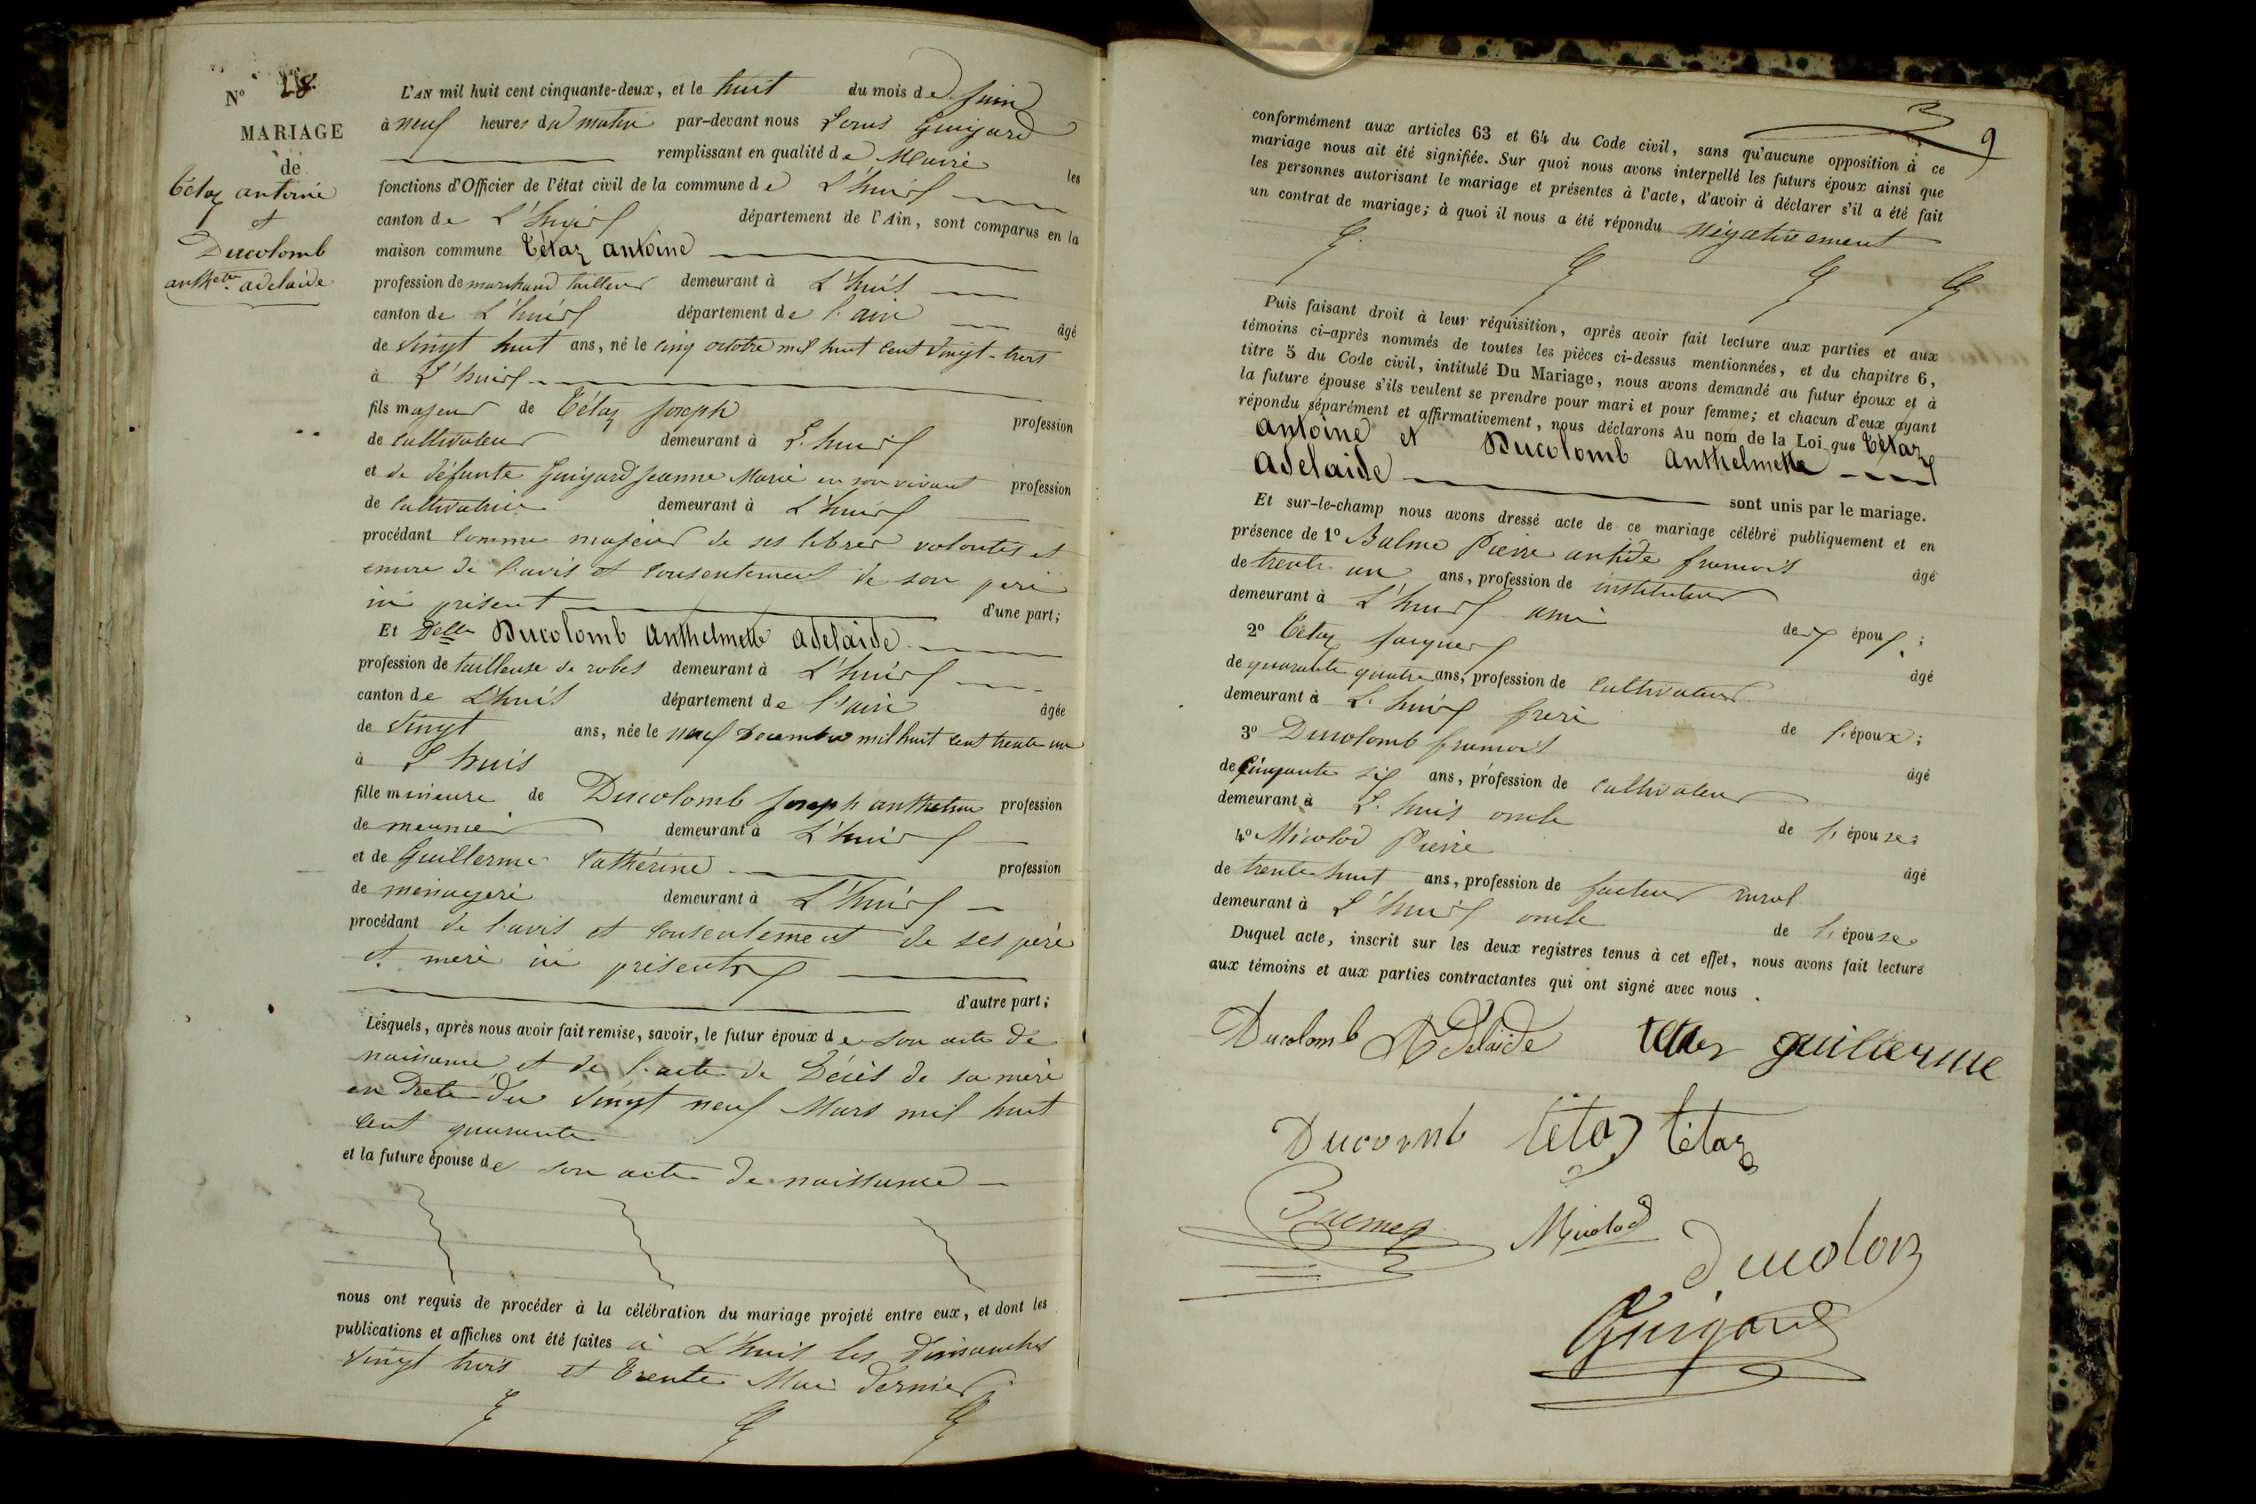 N° 28.
MARIAGE
de
Tétaz antoine
et
Ducolomb
anthette adelaide
L'AN mil huit cent cinquante-deux, et le huit du mois de Juin
à neuf heures du matin par-devant nous Louis Guigard
remplissant en qualité de Maire les
fonctions d'Officier de l'état civil de la commune de L'huis
canton de L'huis département de l'Ain, sont comparus en la
maison commune Tétaz antoine
profession de marchand tailleur demeurant à L'huis
canton de L'huis département de l'ain âgé
de Vingt huit ans, né le cinq octobre mil huit cent Vingt-trois
à L'huis
fils majeur de Tétaz Joseph profession
de cultivateur demeurant à L'huis
et de défunte Guigard Jeanne Marie en son vivant profession
de cultivatrice demeurant à L'huis
procédant comme majeur de ses libres volontés et
encore de l'avis et consentement de son père
ici présent d'une part;
Et Delle Ducolomb Anthelmette adelaide
profession de tailleuse de robes demeurant à L'huis
canton de L'huis département de l'ain âgée
de Vingt ans, née le neuf Decembre mil huit cent trente un
à L'huis
fille mineure de Ducolomb Joseph anthelme profession
de meunier demeurant à L'huis
et de Guillerme Cathérine profession
de ménagere demeurant à L'huis
procédant de l'avis et consentement de ses père
et mère ici présents
d'autre part;
Lesquels, après nous avoir fait remise, savoir, le futur époux de son acte de
naissance et de l'acte de Décès de sa mère
en Date du Vingt neuf Mars mil huit
cent quarante
et la future épouse de son acte de naissance
nous ont requis de procéder à la célébration du mariage projeté entre eux, et dont les
publications et affiches ont été faites à L'huis les Dimanches
Vingt trois et trente Mai dernier
9
conformément aux articles 63 et 64 du Code civil, sans qu'aucune opposition à ce
mariage nous ait été signifiée. Sur quoi nous avons interpellé les futurs époux ainsi que
les personnes autorisant le mariage et présentes à l'acte, d'avoir à déclarer s'il a été fait
un contrat de mariage; à quoi il nous a été répondu Négativement
Puis faisant droit à leur réquisition, après avoir fait lecture aux parties et aux
témoins ci-après nommés de toutes les pièces ci-dessus mentionnées, et du chapitre 6,
titre 5 du Code civil, intitulé Du Mariage, nous avons demandé au futur époux et à
la future épouse s'ils veulent se prendre pour mari et pour femme; et chacun d'eux ayant
répondu séparément et affirmativement, nous déclarons Au nom de la Loi que Tétaz
antoine et Ducolomb Anthelmette
adelaide sont unis par le mariage.
Et sur-le-champ nous avons dressé acte de ce mariage célébré publiquement et en
présence de 1° Balme Pierre antide francois âgé
de trente un ans, profession de instituteur
demeurant à L'huis ami des époux;
2° Tétaz Jacques âgé
de quarante quatre ans, profession de cultivateur
demeurant à L'huis frère de l'époux;
3° Ducolomb francois âgé
de cinquante six ans, profession de cultivateur
demeurant à L'huis oncle de l'épouse;
4° Micolod Pierre âgé
de trente huit ans, profession de facteur rural
demeurant à L'huis oncle de l'épouse
Duquel acte, inscrit sur les deux registres tenus à cet effet, nous avons fait lecture
aux témoins et aux parties contractantes qui ont signé avec nous.
Ducolomb Adelaide tetaz guillerme
Ducolomb tétaz tétaz
Balme Micolod
Ducolon
Guigard